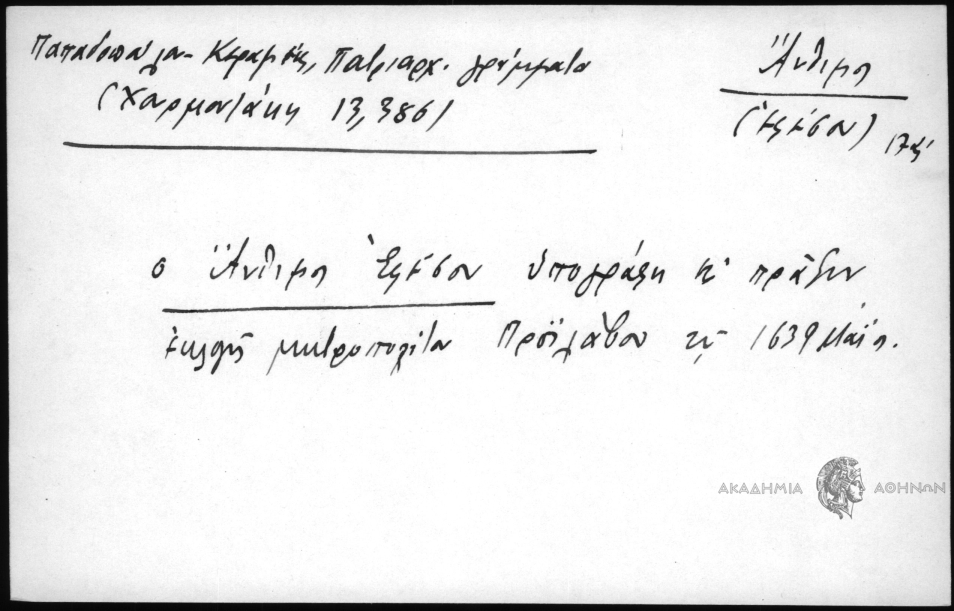 Παπαδοπούλου-Κεραμέως, Πατριαρχ. γράμματα
(Χαρμοντάκη 13, 386)
Ἄνθιμος
(Ἐφέσου)
17ος
ὁ Ἄνθιμος Ἐφέσου ὑπογράφει κ' πρᾶξιν
ἐκλογῆς μητροπολίτου Προϊλάβου τῆς 1639 Μαΐου.
ΑΚΑΔΗΜΙΑ ΑΘΗΝΩΝ